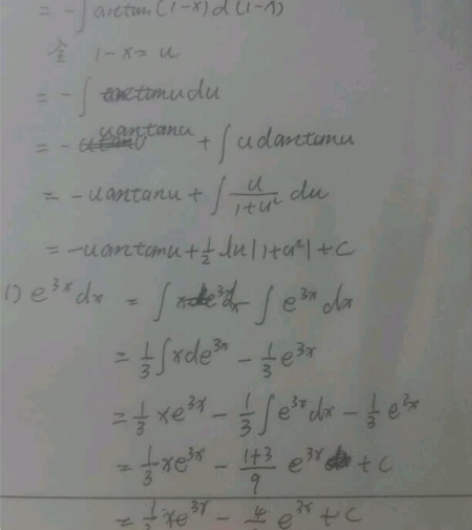 = -∫ arctan(1-x) d(1-x)
令 1-x = u
= -∫ arctanu du
= - uarctanu + ∫ u darctanu
= -uarctanu + ∫ u/(1+u²) du
= -uarctanu + 1/2 ln|1+u²| + C
1) e^{3x} dx = ∫ x e^{3x} dx - ∫ e^{3x} dx
= 1/3 ∫ x de^{3x} - 1/3 e^{3x}
= 1/3 xe^{3x} - 1/3 ∫ e^{3x} dx - 1/3 e^{3x}
= 1/3 xe^{3x} - (1+3)/9 e^{3x} + C
= 1/3 xe^{3x} - 4/ e^{3x} + C